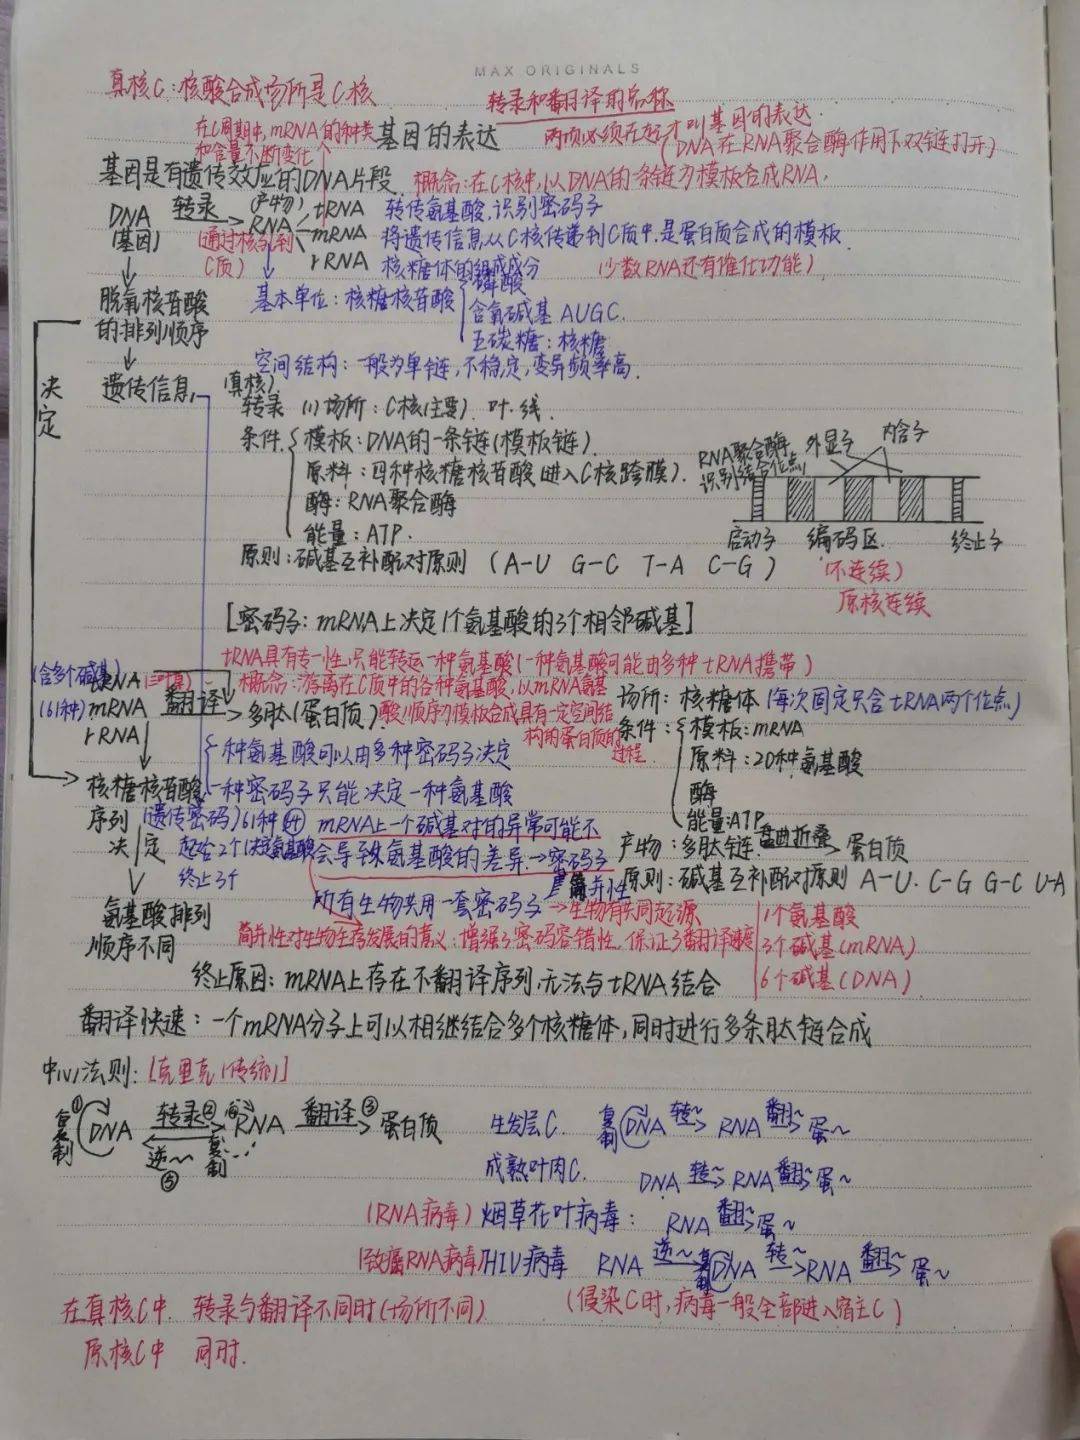 MAX ORIGINALS
真核C:核酸合成场所是C核
转录和翻译的总称
在C周期中,mRNA的种类和含量不断变化
基因的表达
两项必须在好才叫基因的表达.
(DNA在RNA聚合酶作用下双链打开)
基因是有遗传效应的DNA片段.
概念:在C核中,以DNA的一条链为模板合成RNA,
DNA 转录 (产物) RNA tRNA 转传氨基酸,识别密码子
(基因) (通过核孔到C质) mRNA 将遗传信息从C核传递到C质中,是蛋白质合成的模板.
rRNA 核糖体的组成成分 (少数RNA还有催化功能)
脱氧核苷酸的排列顺序
基本单位:核糖核苷酸 磷酸
含氮碱基 AUGC.
五碳糖:核糖
空间结构:一般为单链,不稳定,变异频率高.
决定
遗传信息
(真核)
转录 (1)场所:C核(主要). 叶.线.
条件. 模板:DNA的一条链(模板链).
原料:四种核糖核苷酸(进入C核跨膜).
酶:RNA聚合酶
能量:ATP.
RNA聚合酶识别结合位点 外显子 内含子
启动子 编码区. 终止子
(不连续)
原核连续
原则:碱基互补配对原则 (A-U G-C T-A C-G)
[密码子:mRNA上决定1个氨基酸的3个相邻碱基]
tRNA具有专一性,只能转运一种氨基酸(一种氨基酸可能由多种tRNA携带)
(含多个碱基) tRNA
概念:游离在C质中的各种氨基酸,以mRNA氨基酸顺序为模板合成具有一定空间结构的蛋白质的过程.
(61种) mRNA 翻译 多肽(蛋白质)
rRNA
场所:核糖体(每次固定只含tRNA两个位点)
条件: 模板:mRNA
原料:20种氨基酸
酶
能量:ATP
一种氨基酸可以由多种密码子决定
核糖核苷酸序列 一种密码子只能决定一种氨基酸
(遗传密码) 61种
mRNA上一个碱基对的异常可能不会导致氨基酸的差异→密码子简并性
产物:多肽链 盘曲折叠 蛋白质
决定 起始2个(决定氨基酸)
终止3个
原则:碱基互补配对原则 A-U. C-G G-C U-A
所有生物共用一套密码子→生物有共同起源
氨基酸排列顺序不同
简并性对生物生存发展的意义:增强了密码容错性,保证了翻译速度
1个氨基酸
3个碱基(mRNA)
6个碱基(DNA)
终止原因:mRNA上存在不翻译序列,无法与tRNA结合
翻译快速:一个mRNA分子上可以相继结合多个核糖体,同时进行多条肽链合成
中心法则:[克里克(传统)]
复制① DNA 转录② RNA 翻译③ 蛋白质
逆~ ⑤ 复制
生发层C. 复制 DNA 转~ RNA 翻~ 蛋~
成熟叶肉C. DNA 转~ RNA 翻~ 蛋~
(RNA病毒)烟草花叶病毒: RNA 翻~ 蛋~
(致癌RNA病毒)HIV病毒 RNA 逆~ 复制 DNA 转~ RNA 翻~ 蛋~
在真核C中. 转录与翻译不同时(场所不同)
(侵染C时,病毒一般全部进入宿主C)
原核C中 同时.